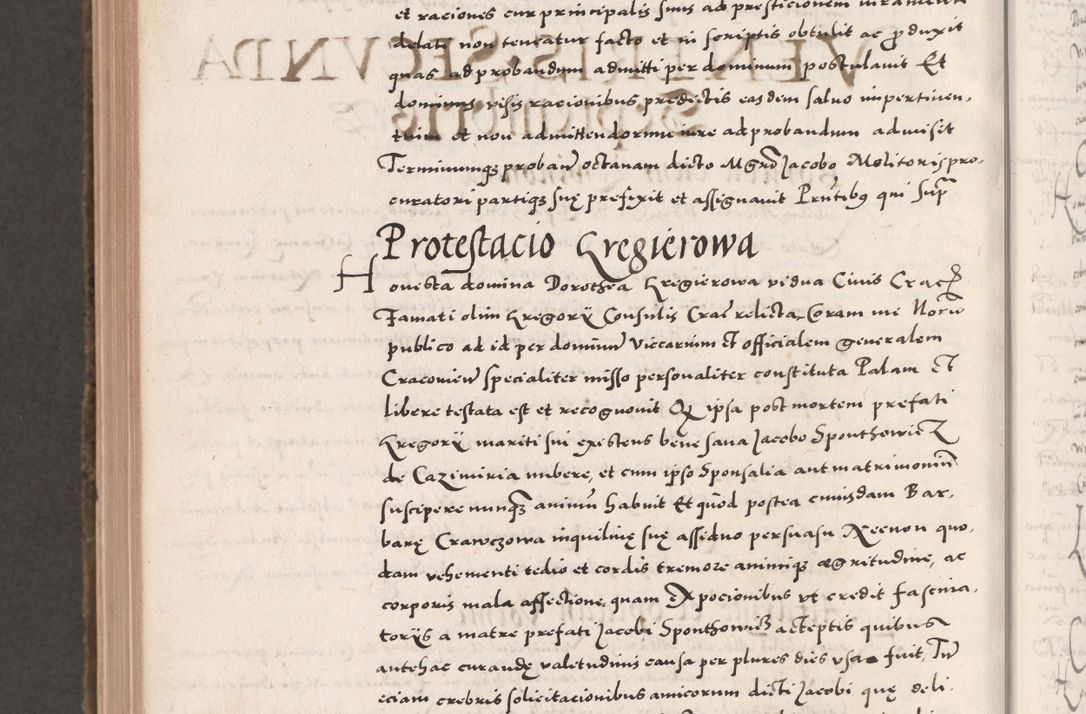 et raciones cur principalis suus ad presticionem iuramenti
delati non teneatur facto et in scriptis obtulit ac produxit
quas ad probandum admitti per dominum postulauit Et
dominus visis racionibus predictis easdem saluo impertinen,
tium et non admittendorum iure ad probandum admisit
Terminumq3 proban̄ octauam dicto Mgrō Jacobo Molitoris pro,
curatori partiq3 suę prefixit et assignauit Pn̄tibq qui supͣ
Protestacio Gregierowa
Honesta domina Dorothea Gregierowa vidua Ciuis Crac̄
Famati olim Gregorÿ Consulis Crac̄ relicta, Coram me Notrio
publico ad id per dominum Viccarium et officialem generalem
Cracouien̄ specialiter misso personaliter constituta Palam et
libere testata est et recognouit Qx ipsa post mortem prefati
Gregorÿ mariti sui existens bene sana Jacobo Sponthowicz
de Cazimiria nubere, et cum ipso Sponsalia aut matrimoniū
suscipere nunq3 animū habuit Et quod postea cuiusdam Bar,
barę Crawczowa inquilinię suę assiduo persuasu Necnon quo,
dam vehementi tedio et cordis tremore animiq3 ægritudine, ac
corporis mala affectione, quam Ex pocionibus vt credit fascina,
torijs a matre prefati Jacobi Sponthowicz acceptis quibus
antehac curandę valetudinis causa per plures dies vsa fuit, Tū
eciam crebris solicitacionibus amicorum dicti Jacobi quę deli,